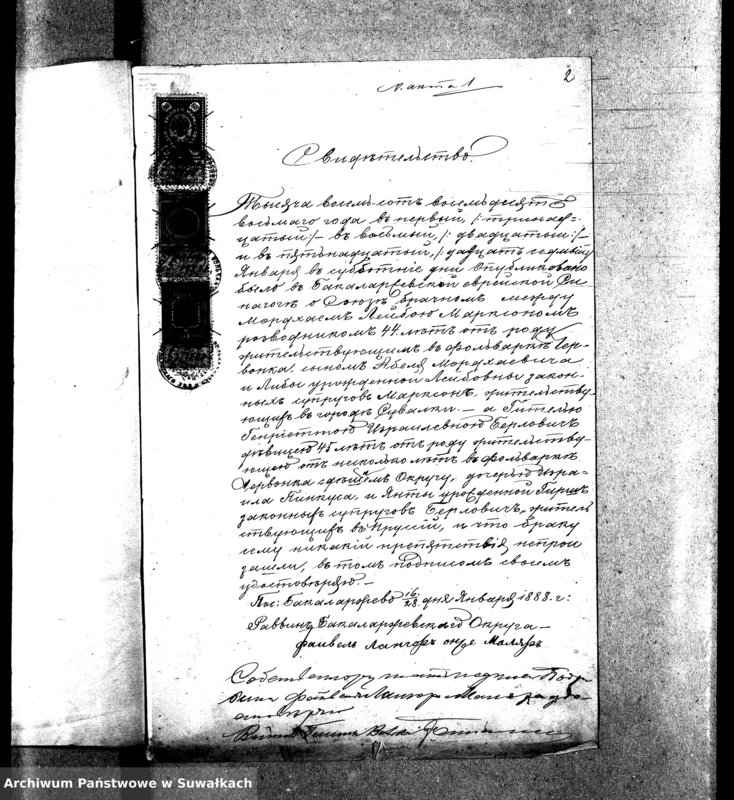 2
N. акта 1
Свидѣтельство
Тысяча восемьсотъ восемьдесятъ
восьмаго года въ первый, /: тринад=
цатый :/ – въ восьмый, /: двадцатый :/ –
и въ пятьнадцатый, /: двадцать седьмый
Января въ субботніе дни опубликовано
было въ Бакаларжевской еврейской Си-
нагогѣ о Союзѣ брачномъ между
Мордхаемъ Лейбою Марксономъ
розводникомъ 44 лѣтъ отъ роду
жительствующимъ въ фольваркѣ Чер-
вонка, сыномъ Абеля Мордхаевича
и Либы урожденной Лейбовны закон-
ныхъ супруговъ Марксонъ, жительству-
ющихъ въ городѣ Сувалки. – а Гителею
Генріеттою Израилевною Берловичъ
дѣвицею 45 лѣтъ отъ роду жительству-
ющею отъ несколько лѣтъ въ фольваркѣ
Червонка сдѣшнемъ Округу, дочерью Изра=
ила Пинкуса и Янты урожденной Гиршъ
законныхъ супруговъ Берловичъ, жител
ствующихъ въ Пруссіи, и что браку
сему никакій препятствія непрои
зашли, въ томъ подписомъ своемъ
удостовѣряю. –
Пос: Бакаларжево 16/28 дня Января 1888 г:
Раввинъ Бакаларжевскаго Округа –
Файвель Лангоръ онже Маляръ
Собственноручность подписа Раб
бина Файвеля Лангор Маляр удо
стовѣряю
Войтъ Гмины
Archiwum Państwowe w Suwałkach